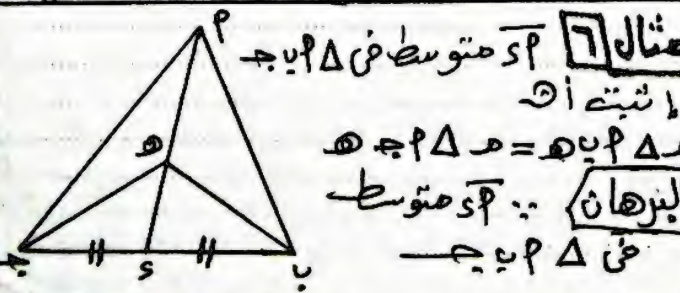 مثال ٦ أء متوسط فى Δ أ ب جـ
إثبت أن
مـ Δ أ ب هـ = مـ Δ أ جـ هـ
البرهان ∵ أء متوسط
فى Δ أ ب جـ
أ
هـ
جـ ء ب